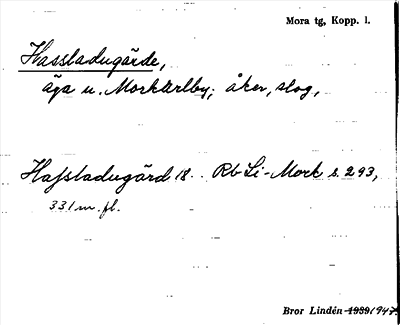 Mora tg, Kopp. l.
Hassladugärde,
äga u. Morkarlby; åker, slog,
Hafsladugärd 18.. Rb Li-Mork s. 293,
331 m. fl.
Bror Lindén 1939 1947.